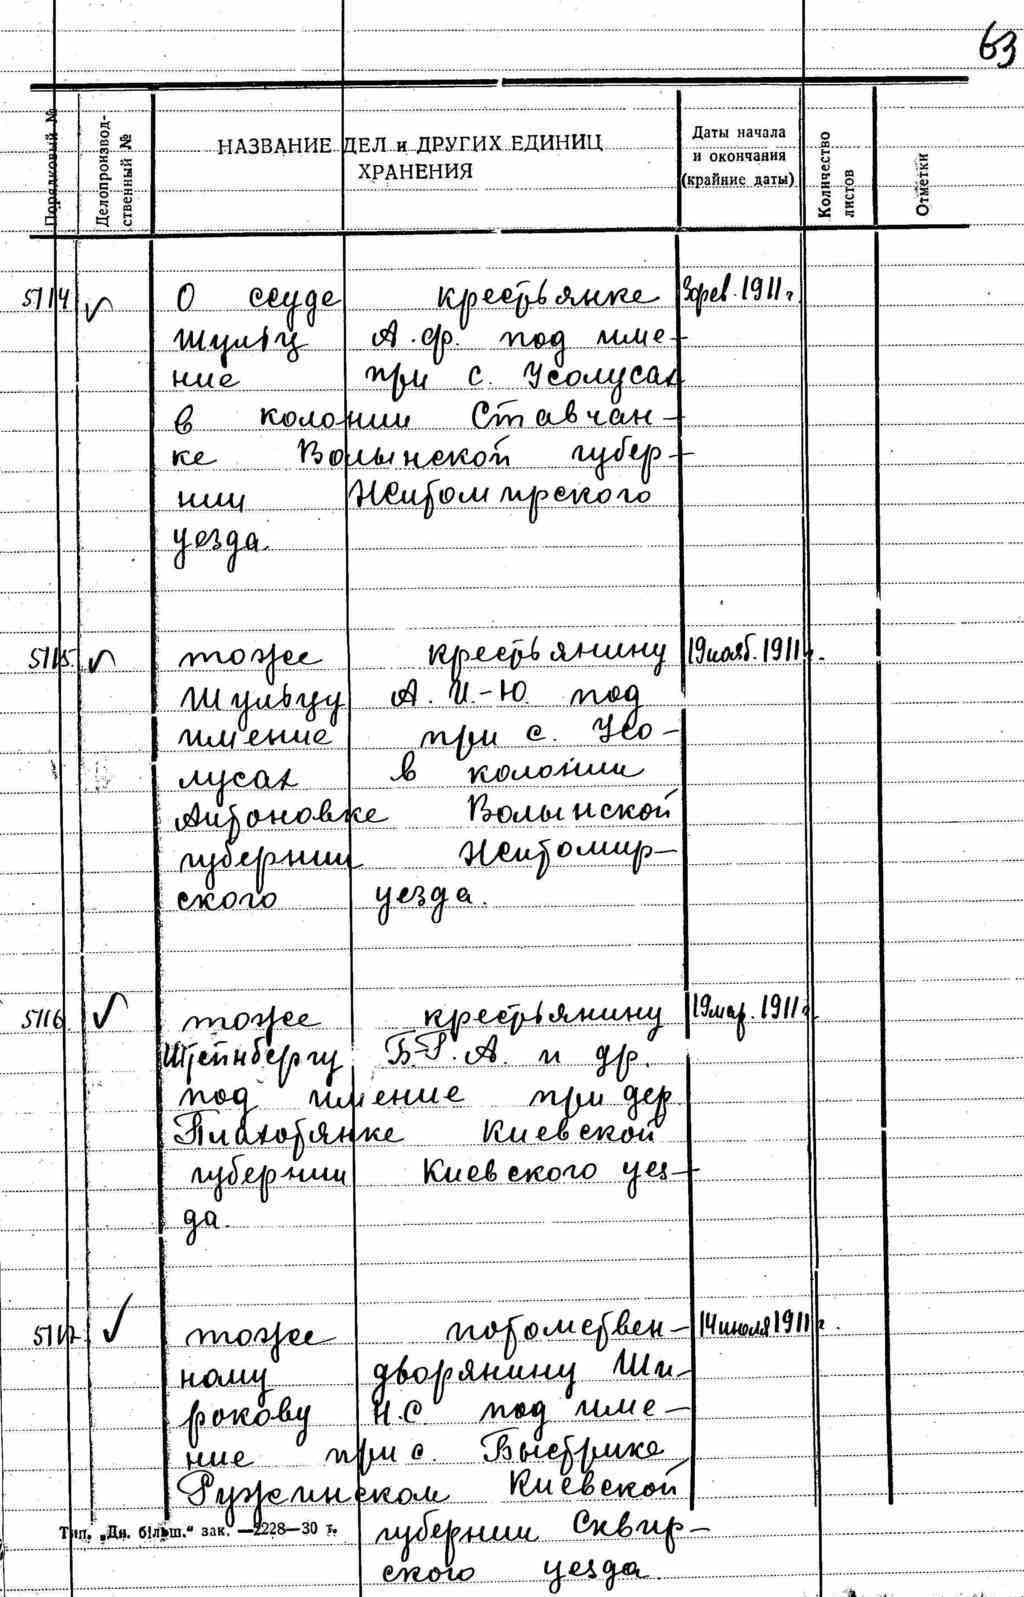 63
Порядковый №
Делопроизвод-
ственный №
НАЗВАНИЕ ДЕЛ и ДРУГИХ ЕДИНИЦ
ХРАНЕНИЯ
Даты начала
и окончания
(крайние даты)
Количество
листов
Отметки
5114 О ссуде крестьянке 3 фев. 1911 г.
Шульц А.Ф. под име-
ние при с. Усолусах
в колонии Ставчан-
ке Волынской губер-
нии Житомирского
уезда.
5115. тоже крестьянину 19 нояб. 1911 г.
Шульцу А. И.-Ю. под
имение при с. Усо-
лусах в колонии
Антоновке Волынской
губернии Житомир-
ского уезда.
5116. тоже крестьянину 19 мар. 1911 г.
Штейнбергу Б-Г. А. и др.
под имение при дер.
Плахотянке Киевской
губернии Киевского уез-
да.
5117. тоже потомствен- 14 июля 1911 г.
ному дворянину Ши-
рокову Н.С. под име-
ние при с. Быстрике
Ружинском Киевской
губернии Сквир-
ского уезда.
Тип. „Дн. більш.“ зак. —2228—30 г.